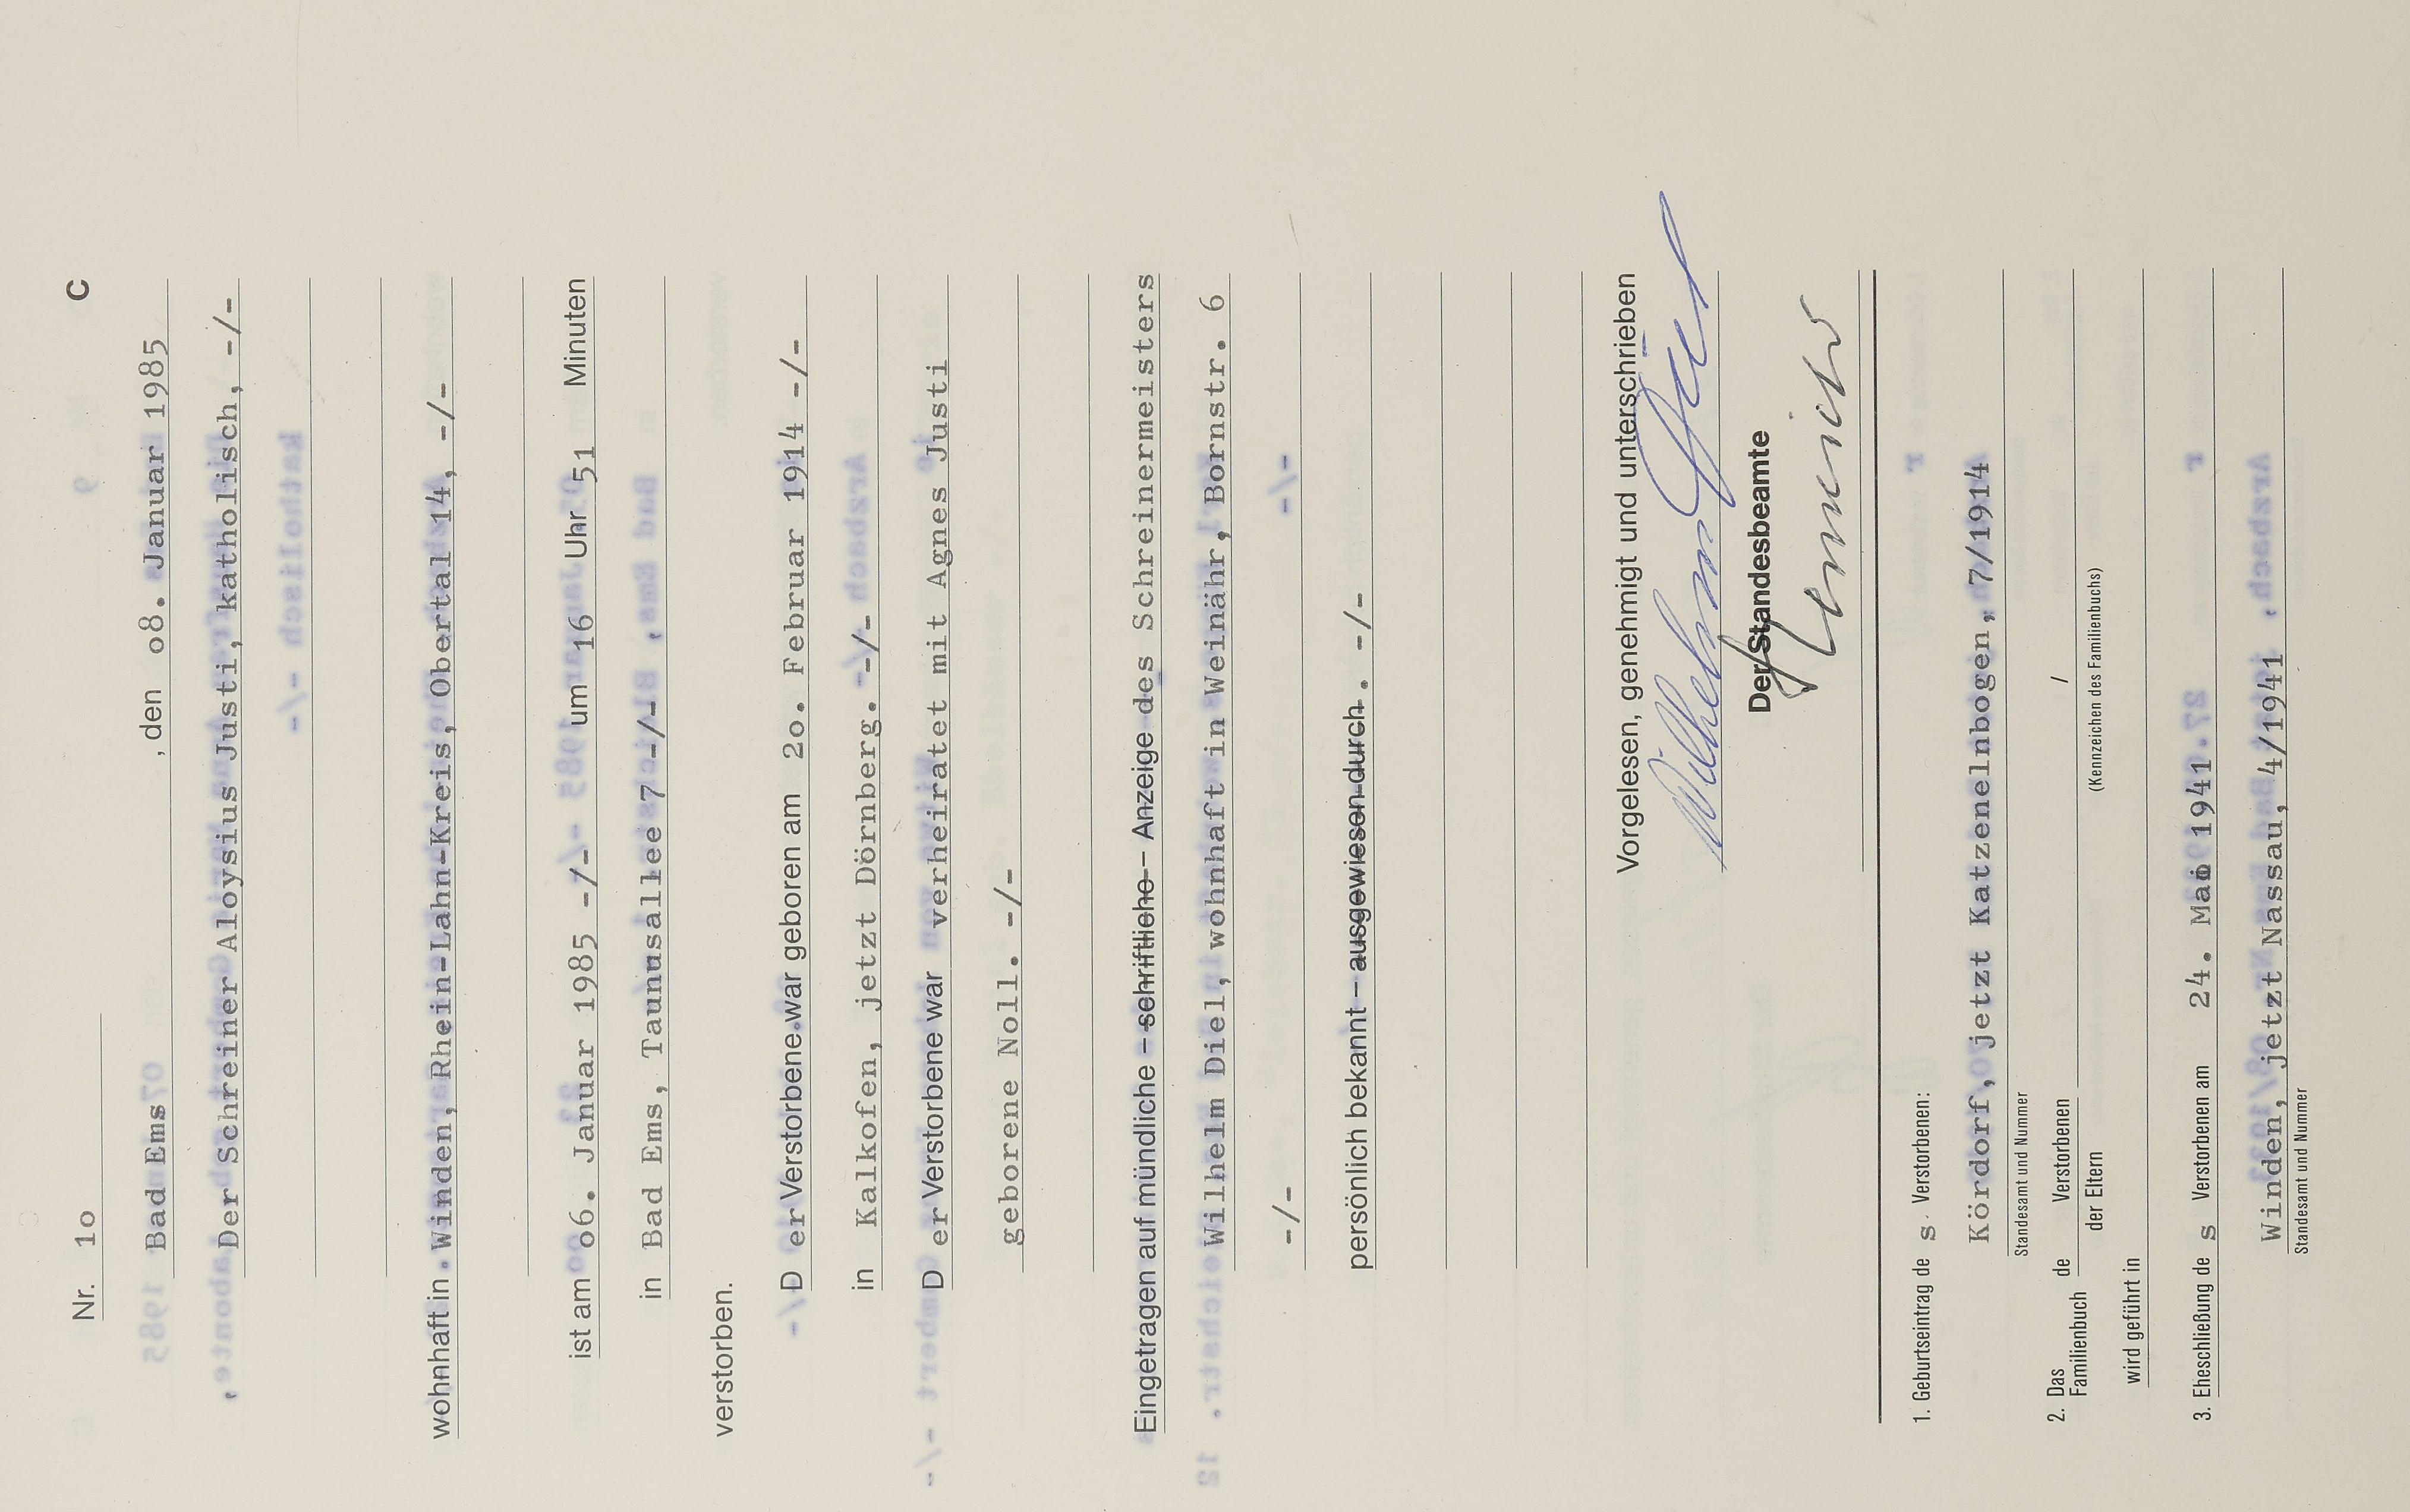 Nr. 1o C
Bad Ems , den o8. Januar 1985
Der Schreiner Aloysius Justi, katholisch, -/-
wohnhaft in Winden, Rhein-Lahn-Kreis, Obertal 14, -/-
ist am o6. Januar 1985 -/- um 16 Uhr 51 Minuten
in Bad Ems, Taunusallee 7 -/-
verstorben.
D er Verstorbene war geboren am 2o. Februar 1914 -/-
in Kalkofen, jetzt Dörnberg. -/-
D er Verstorbene war verheiratet mit Agnes Justi
geborene Noll. -/-
Eingetragen auf mündliche – schriftliche – Anzeige des Schreinermeisters
Wilhelm Diel, wohnhaft in Weinähr, Bornstr. 6
-/-
persönlich bekannt – ausgewiesen durch . -/-
Vorgelesen, genehmigt und unterschrieben
Wilhelm Diel
Der Standesbeamte
1. Geburtseintrag de s Verstorbenen:
Kördorf, jetzt Katzenelnbogen, 7/1914
Standesamt und Nummer
2. Das Familienbuch de Verstorbenen / der Eltern
wird geführt in
(Kennzeichen des Familienbuchs)
3. Eheschließung de s Verstorbenen am 24. Mai 1941
Winden, jetzt Nassau, 4/1941
Standesamt und Nummer